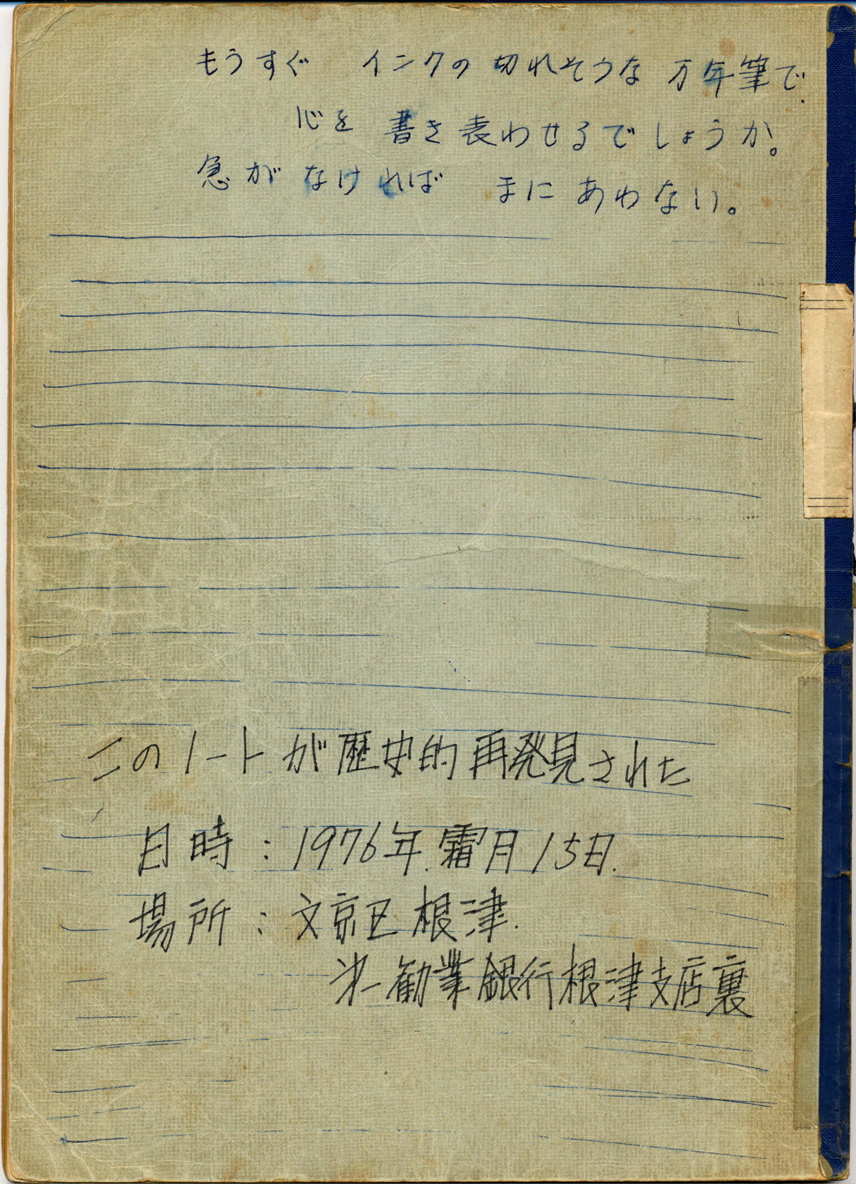 もうすぐ インクの切れそうな万年筆で
心を書き表わせるでしょうか。
急がなければ まにあわない。
このノートが歴史的再発見された
日時:1976年.霜月15日.
場所:文京区根津.
㐧一勧業銀行根津支店裏